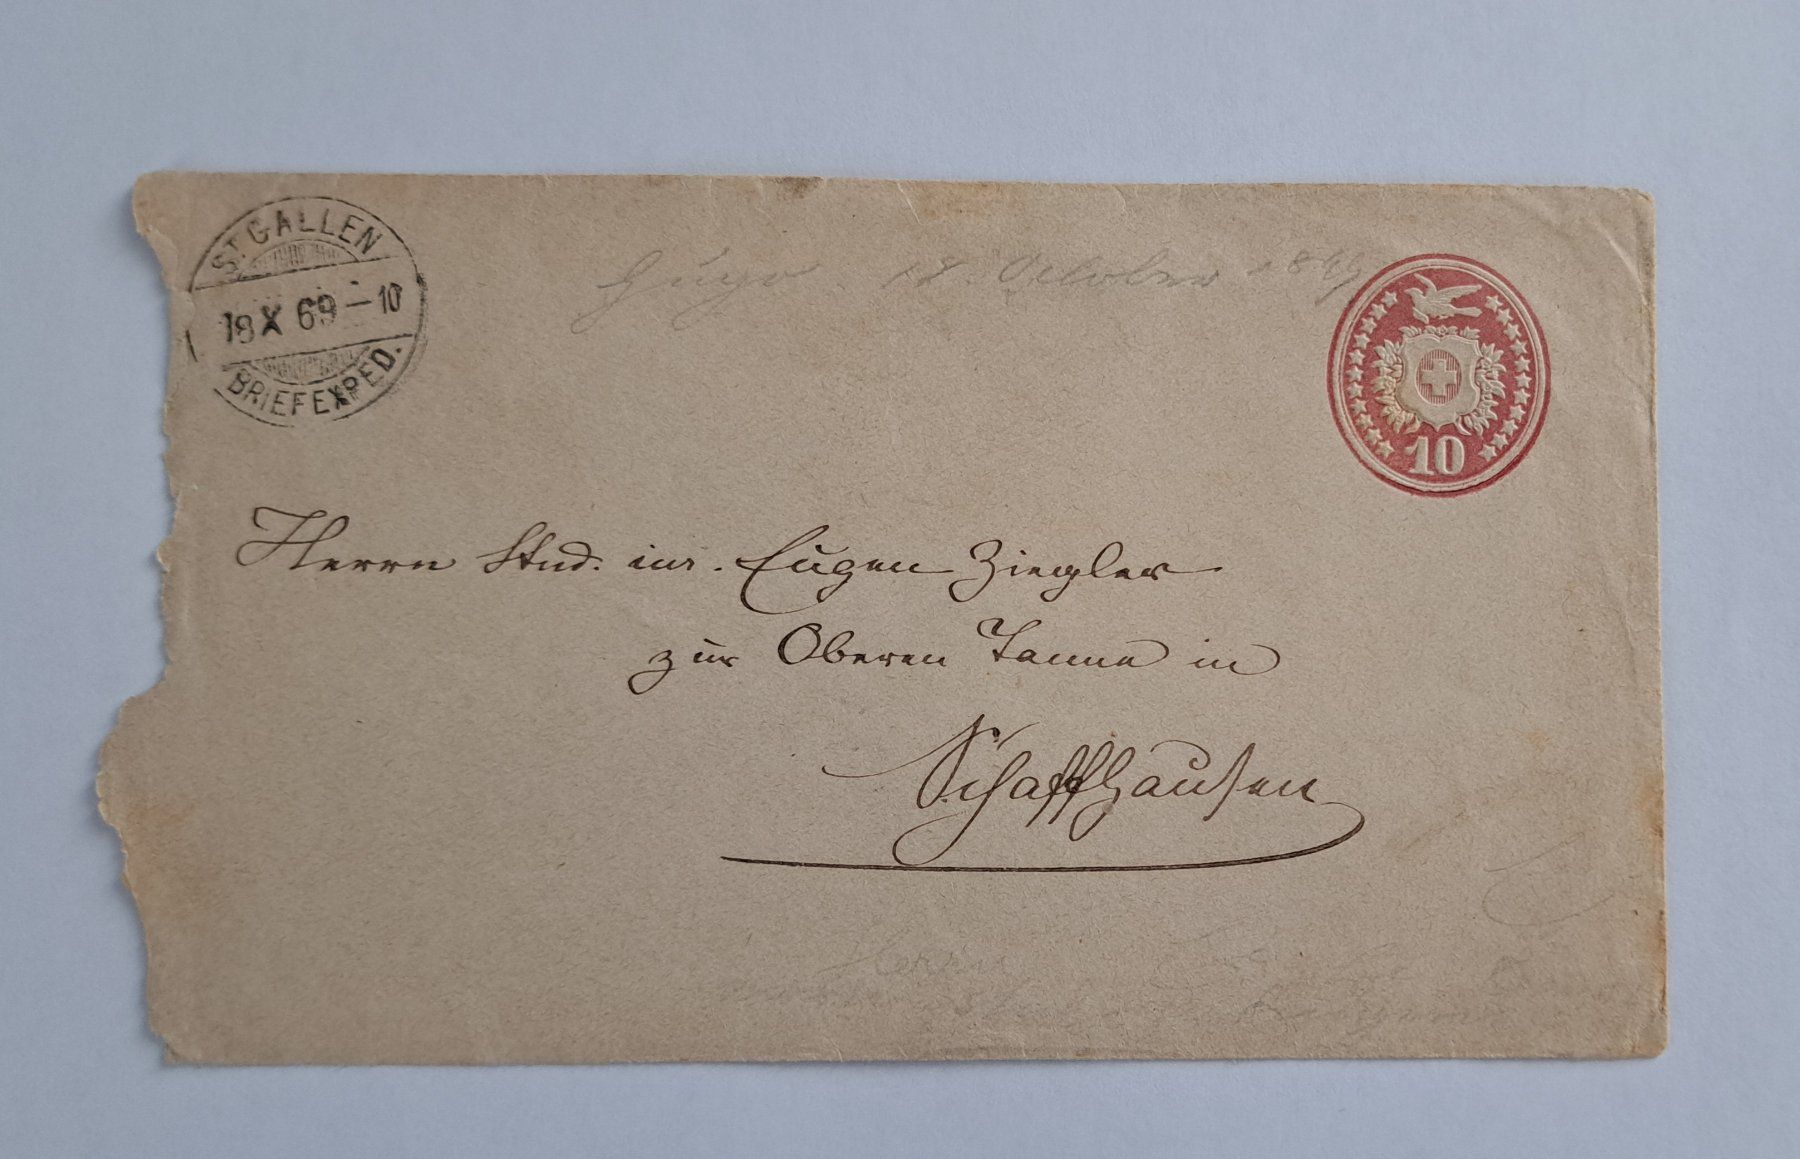 ST. GALLEN
18 X 69 – 10
BRIEFEXPED.
Hugo 18. October 1869
10
Herrn Stud. iur. Eugen Ziegler
zur Oberen Tanne in
Schaffhausen
Herrn